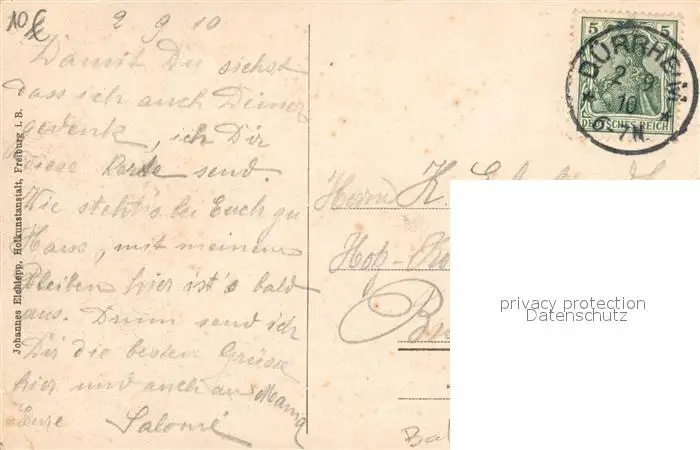 10
2 9 10
Damit Du siehst
dass ich auch Deiner
gedenk, ich Dir
diese Karte send.
Wie steht's bei Euch zu
Haus, mit meinem
Bleiben hier ist's bald
aus. Drum send ich
Dir die besten Grüsse
hier und auch an Mama
Eure Salomé
Johannes Elchlepp, Hofkunstanstalt, Freiburg i. B.
5 5
DEUTSCHES REICH
DÜRRHEIM
2 9
10
6-7N.
Herrn K.
Hof-
privacy protection
Datenschutz